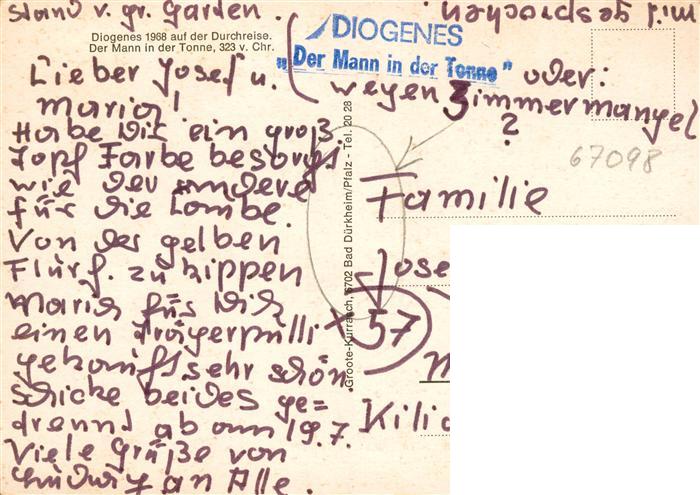 stand v. gr. Garden.
mit gesprochen
Diogenes 1968 auf der Durchreise.
Der Mann in der Tonne, 323 v. Chr.
DIOGENES
„Der Mann in der Tonne"
oder:
wegen Zimmermangel
?
67098
Lieber Josef u.
Maria!
Habe Dir ein groß.
Topf Farbe besorgt.
wie der andere
für die Lambe.
Von der gelben
Flurf. zu kippen
Maria für Dich
einen Trägerpulli
gekauft sehr schön.
schicke beides ge=
trennt ab am 19.7.
Viele Grüße von
Ludwig an Alle.
Groote-Kurrasch, 6702 Bad Dürkheim/Pfalz - Tel. 20 28
Familie
Jose
57
Kilia